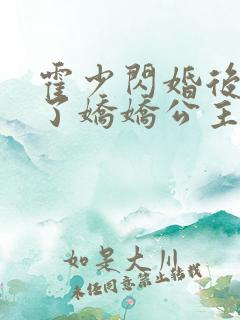 霍少閃婚後
了嬌嬌公主
如是大川
未經同意禁止轉載